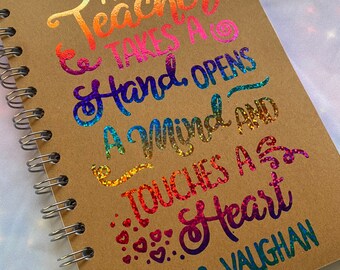 Teacher
TAKES A
Hand, OPENS
A Mind AND
TOUCHES A
Heart
VAUGHAN